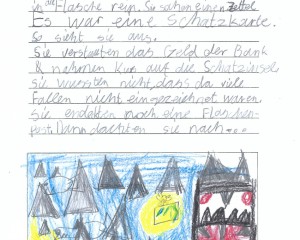 in die Flasche rein. Sie sahen einen Zettel
Es war eine Schatzkarte.
So sieht sie aus.
Sie verstauten das Geld der Bank
& nahmen Kurs auf die Schatzinsel
sie wussten nicht, dass da viele
Fallen nicht eingezeichnet waren.
sie endekten noch eine Flaschen-
post. Dann dachten sie nach...